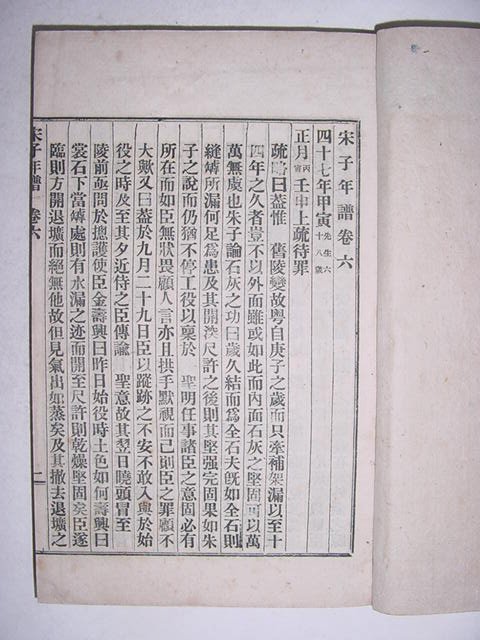 宋子年譜卷六
四十七年甲寅先生六十八歲
正月丙寅壬申上疏待罪
疏略曰蓋惟 舊陵變故粤自庚子之歲而只牽補架漏以至十
四年之久者豈不以外面雖或如此而內面石灰之堅固可以萬
萬無虞也朱子論石灰之功曰歲久結而爲全石夫旣如全石則
縫罅所漏何足爲患及其開深尺許之後則其堅强完固果如朱
子之說而仍猶不停工役以稟於 聖明任事諸臣之意固必有
所在而如臣無狀畏顧人言亦且拱手默視而已則臣之罪顧不
大歟又曰蓋於九月二十九日臣以蹤跡之不安不敢入與於始
役之時及至其夕近侍之臣傳諭 聖意故其翌日曉頭冒至
陵前亟問於摠護使臣金壽興曰昨日始役時土色如何壽興曰
裳石下當罅處則有水漏之迹而開至尺許則乾燥堅固矣臣遂
臨則方開退壙而絕無他故但見氣出如蒸矣及其撤去退壙之
宋子年譜 卷六